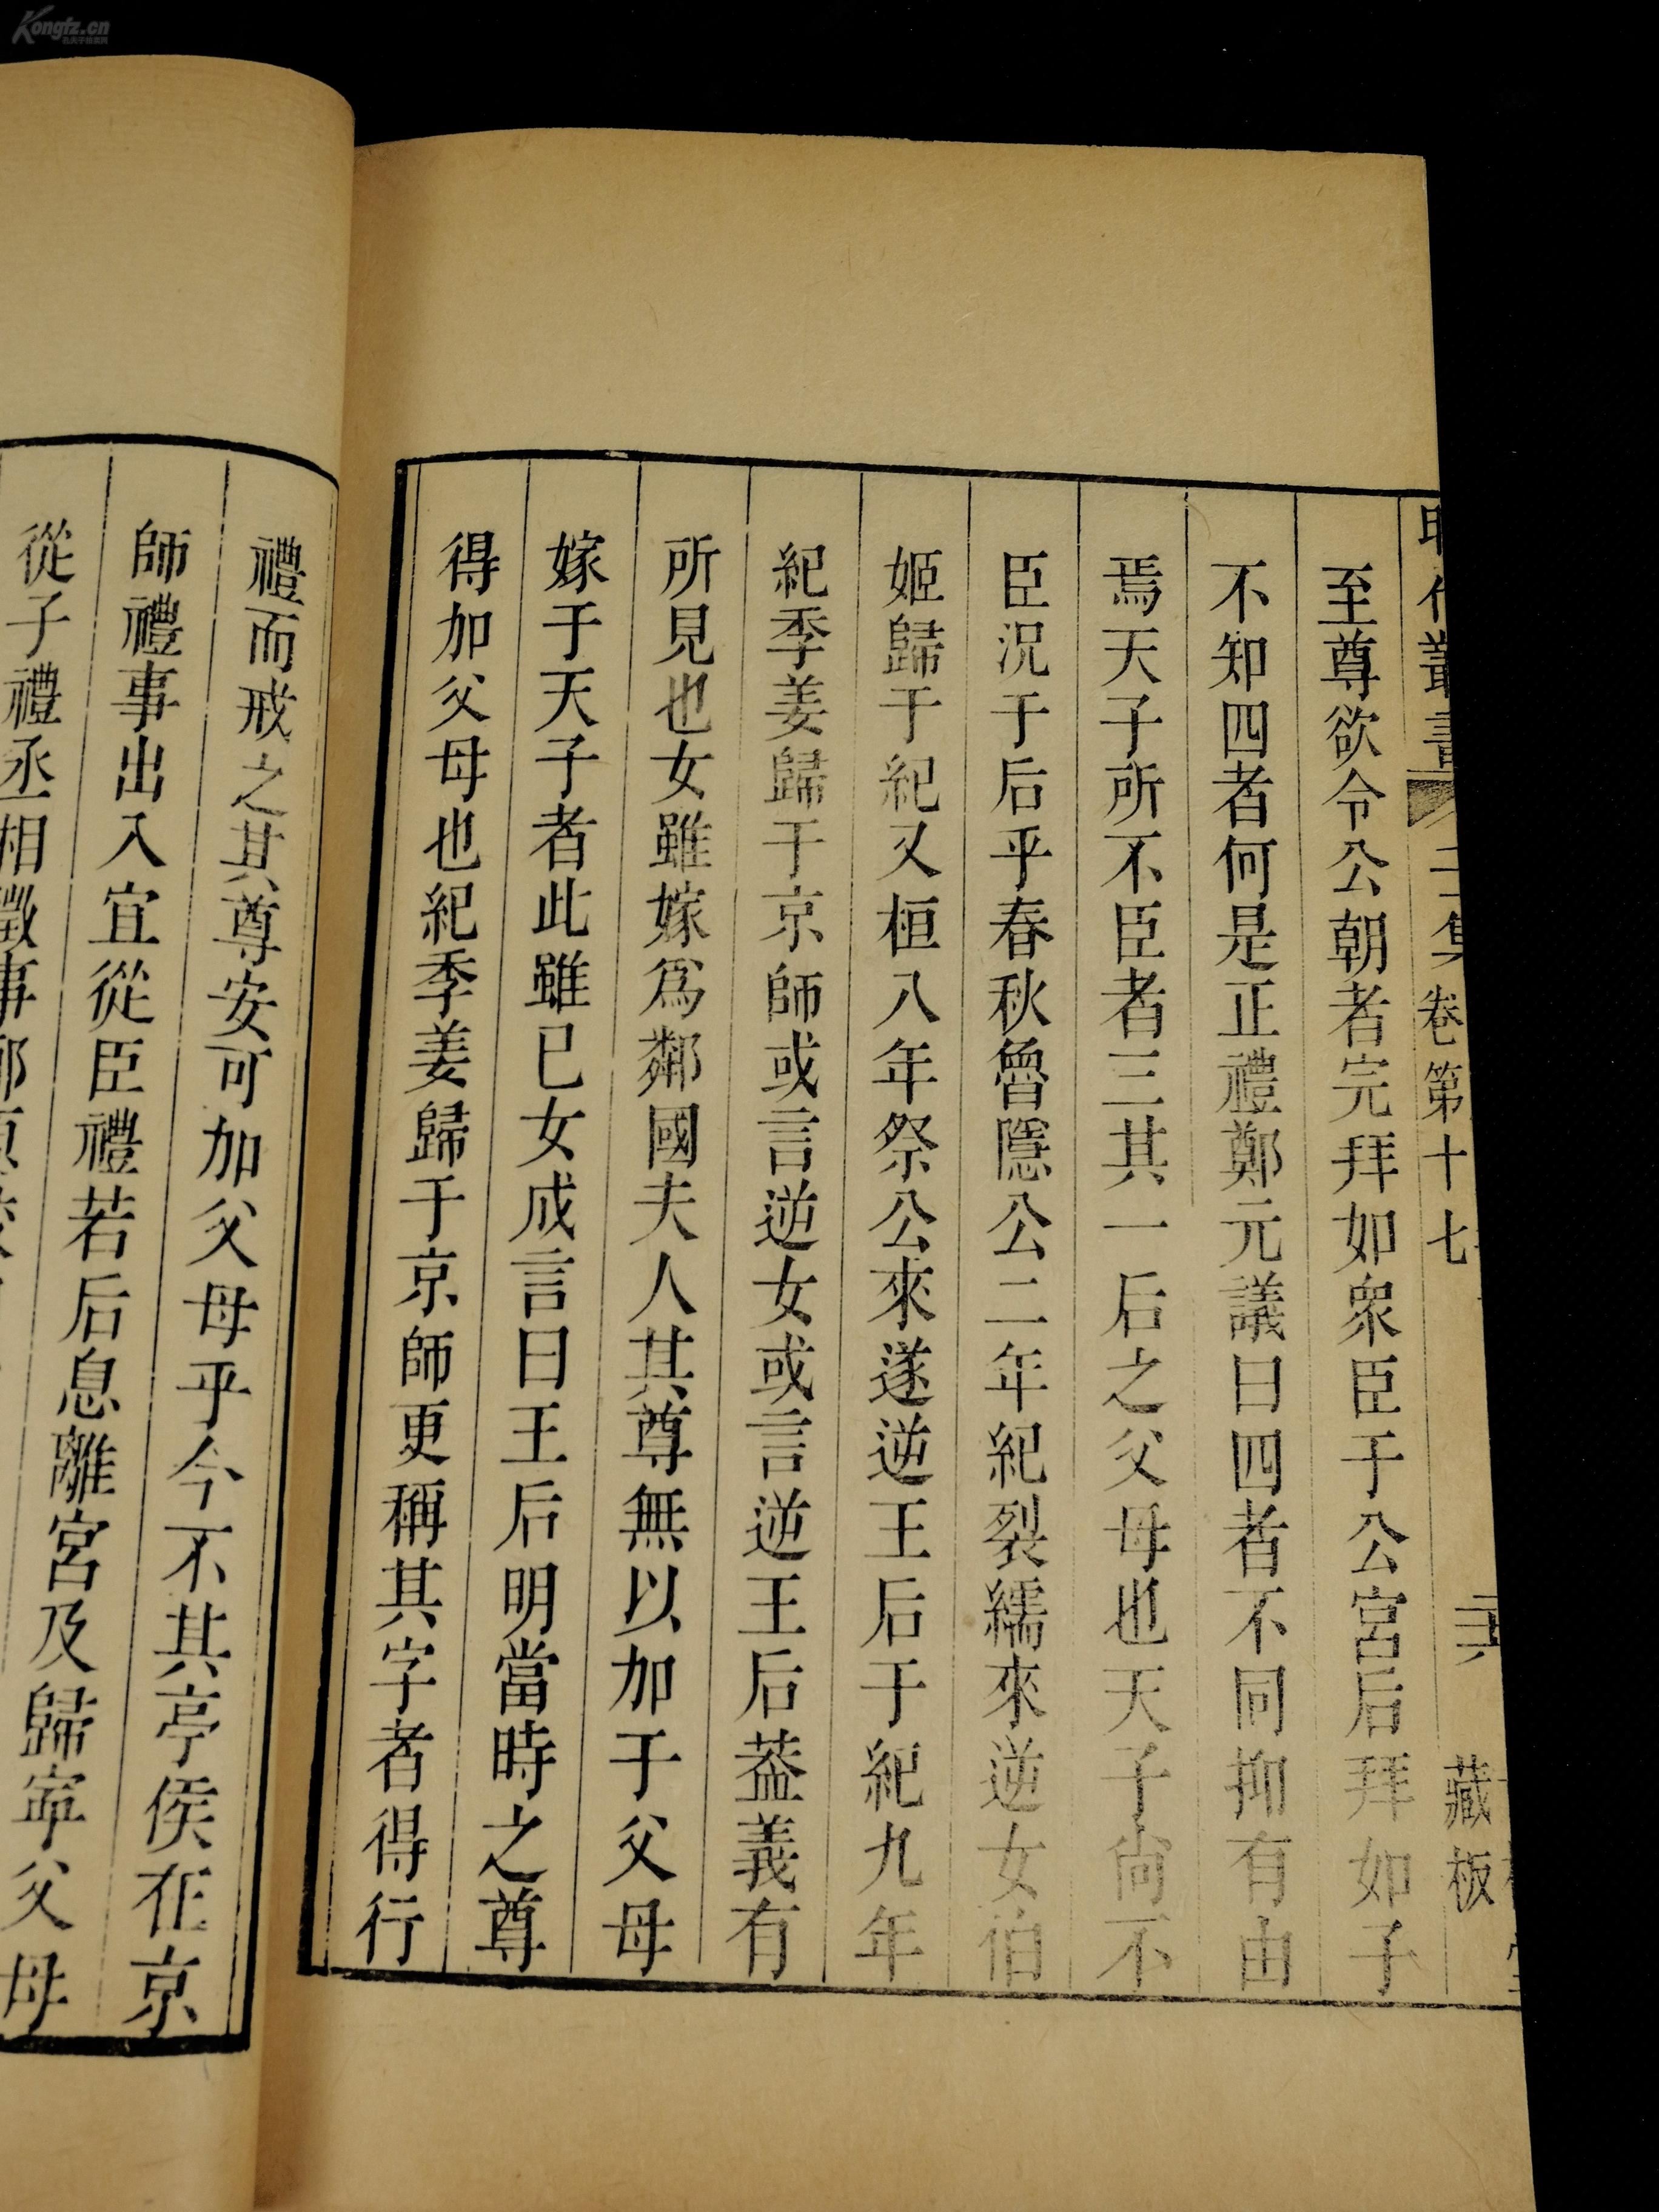 代叢書
卷第十七
藏板
至尊欲令公朝者完拜如眾臣于公宮后拜如子
不知四者何是正禮鄭元議曰四者不同抑有由
焉天子所不臣者三其一后之父母也天子尙不
臣況于后乎春秋魯隱公二年紀裂繻來逆女伯
姬歸于紀又桓八年祭公來遂逆王后于紀九年
紀季姜歸于京師或言逆女或言逆王后葢義有
所見也女雖嫁爲鄰國夫人其尊無以加于父母
嫁于天子者此雖已女成言曰王后明當時之尊
得加父母也紀季姜歸于京師更稱其字者得行
禮而戒之其尊安可加父母乎今不其亭侯在京
師禮事出入宜從臣禮若后息離宮及歸寧父母
從子禮丞相徵事
Kongfz.cn